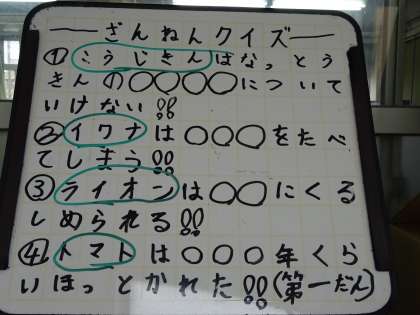 ざんねんクイズ
①こうじきんはなっとう
きんの○○○○について
いけない!!
②イワナは○○○をたべ
てしまう!!
③ライオンは○○にくる
しめられる!!
④トマトは○○○年くら
いほっとかれた!!(第一だん)